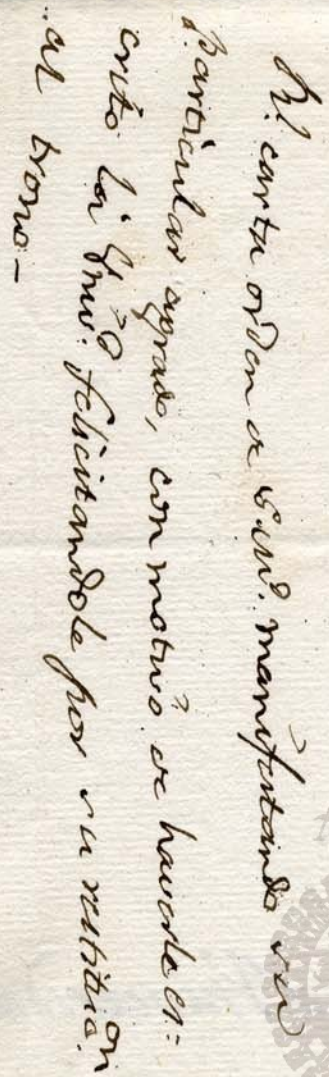 Rl. carta orden de S.M. manifestando su
particular agrado, con motivo de haverle es=
crito la Univd. felicitandole por su restitucion
al trono-